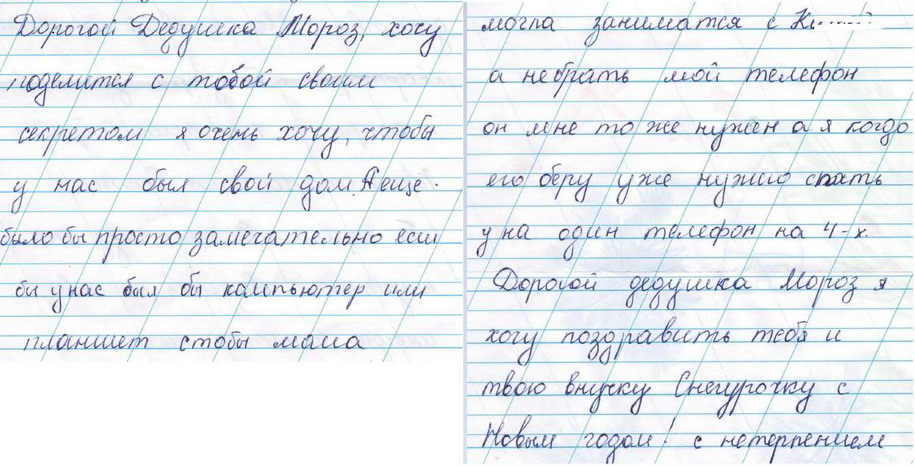 Дорогой Дедушка Мороз, хочу
поделится с тобой своим
секретом я очень хочу, чтобы
у нас был свой дом. А еще.
было бы просто замечательно если
бы унас был бы компьютер или
планшет стобы мама
могла заниматся с
а небрать мой телефон
он мне то же нужен а я когдо
его беру уже нужно спать
у на один телефон на 4-х.
Дорогой дедушка Мороз я
хочу поздравить тебя и
твою внучку Снегурочку с
Новым годом! с нетерпением